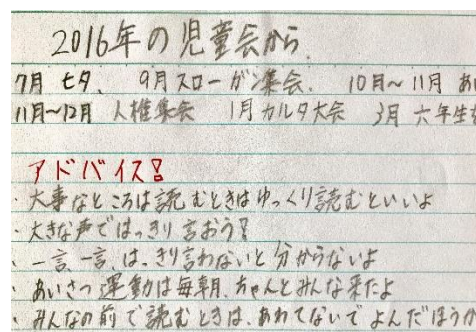 2016年の児童会から
7月 七夕、 9月スローガン集会. 10月~11月 あい
11月~12月 人権集会 1月 カルタ大会 3月 六年生を
アドバイス!
・大事なところは読むときはゆっくり読むといいよ
・大きな声ではっきり言おう!
・一言、一言、は、きり言わないと分からないよ
・あいさつ運動は毎朝、ちゃんとみんな来たよ
・みんなの前で読むときは、あわてないでよんだほうが